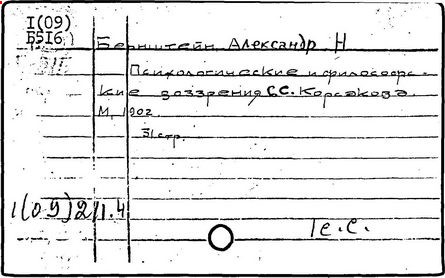 1(09)
Б516
Бернштейн, Александр Н
Психологические и философс-
кие воззрения С.С. Корсакова.
М, 1902.
31 стр.
1(09)2/1.4
1е.е.